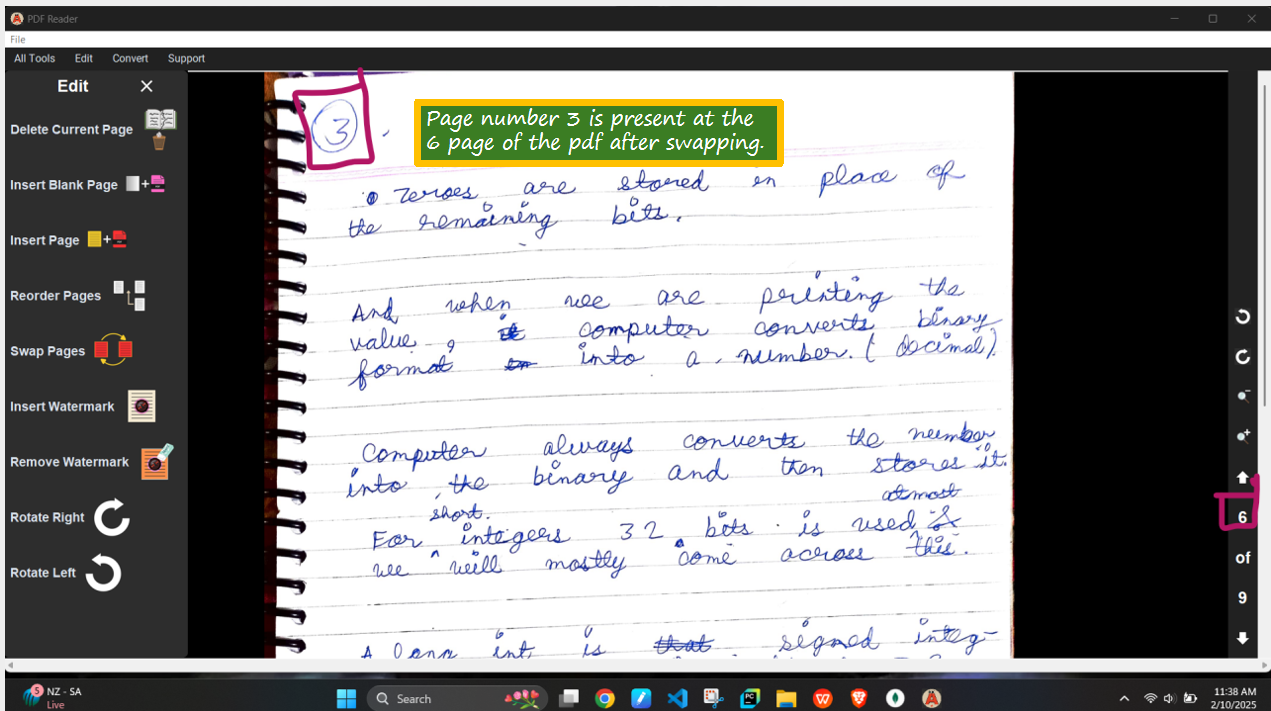 PDF Reader
File
All Tools Edit Convert Support
Edit
Delete Current Page
Insert Blank Page
Insert Page
Reorder Pages
Swap Pages
Insert Watermark
Remove Watermark
Rotate Right
Rotate Left
3
Page number 3 is present at the
6 page of the pdf after swapping.
Zeroes are stored in place of
the remaining bits.
And when we are printing the
value, computer converts binary
format into a number. (decimal).
Computer always converts the number
into the binary and then stores it.
short. atmost
For integers 32 bits is used &
we will mostly come across this.
A long int is that signed integ-
6
of
9
NZ - SA
Live
Search
11:38 AM
2/10/2025